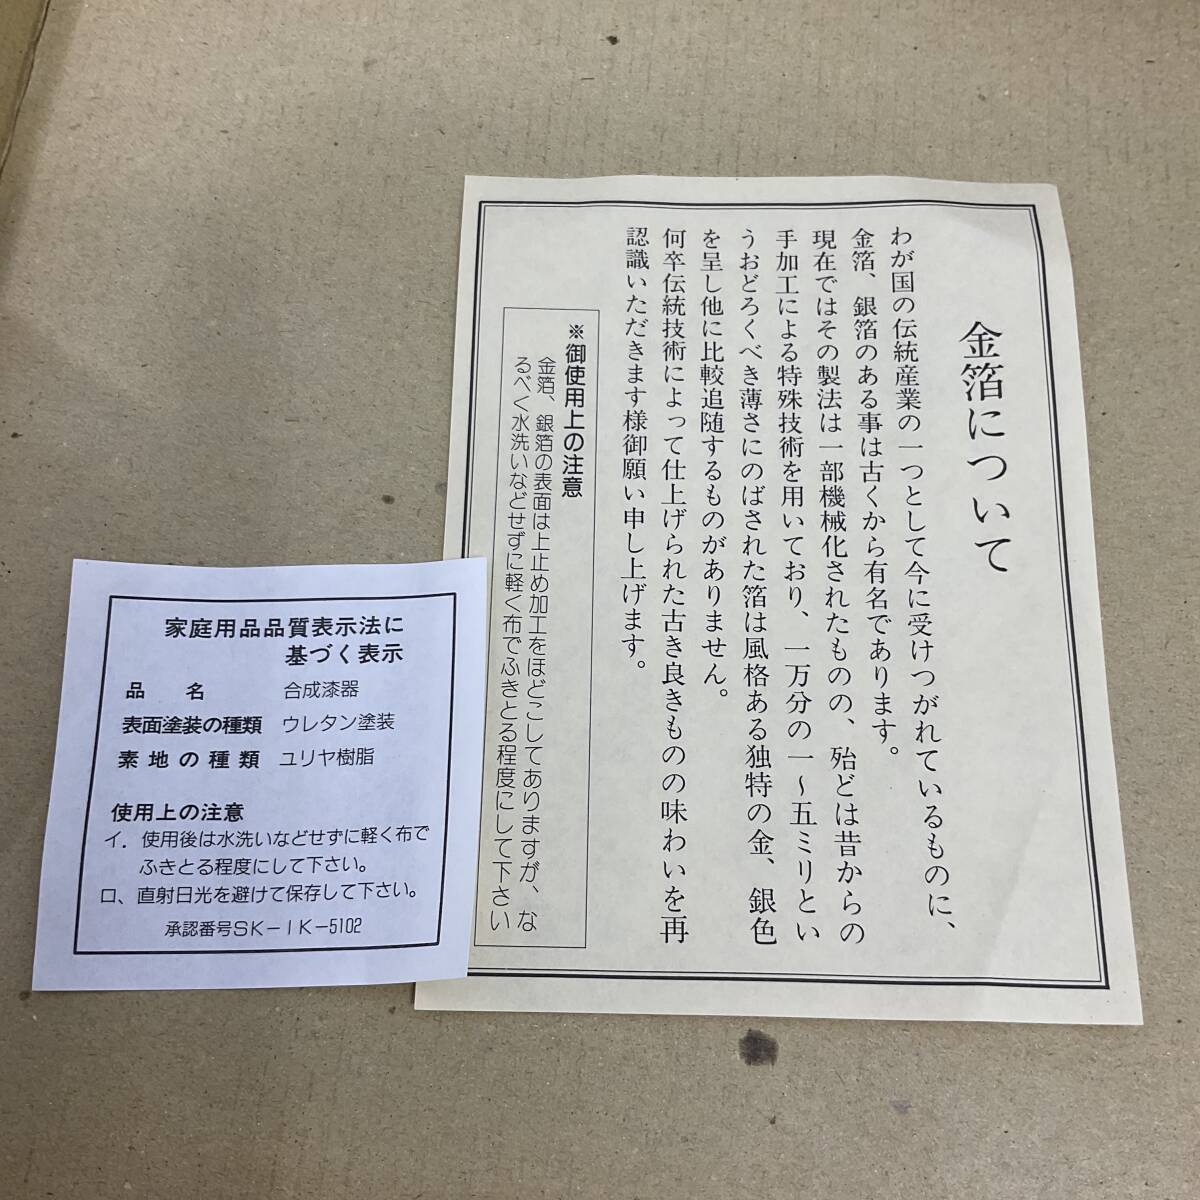 金箔について
わが国の伝統産業の一つとして今に受けつがれているものに、
金箔、銀箔のある事は古くから有名であります。
現在ではその製法は一部機械化されたものの、殆どは昔からの
手加工による特殊技術を用いており、一万分の一～五ミリとい
うおどろくべき薄さにのばされた箔は風格ある独特の金、銀色
を呈し他に比較追随するものがありません。
何卒伝統技術によって仕上げられた古き良きものの味わいを再
認識いただきます様御願い申し上げます。
※御使用上の注意
金箔、銀箔の表面は上止め加工をほどこしてありますが、な
るべく水洗いなどせずに軽く布でふきとる程度にして下さい
家庭用品品質表示法に
基づく表示
品　名　合成漆器
表面塗装の種類　ウレタン塗装
素地の種類　ユリヤ樹脂
使用上の注意
イ．使用後は水洗いなどせずに軽く布で
ふきとる程度にして下さい。
ロ、直射日光を避けて保存して下さい。
承認番号SK－IK－5102